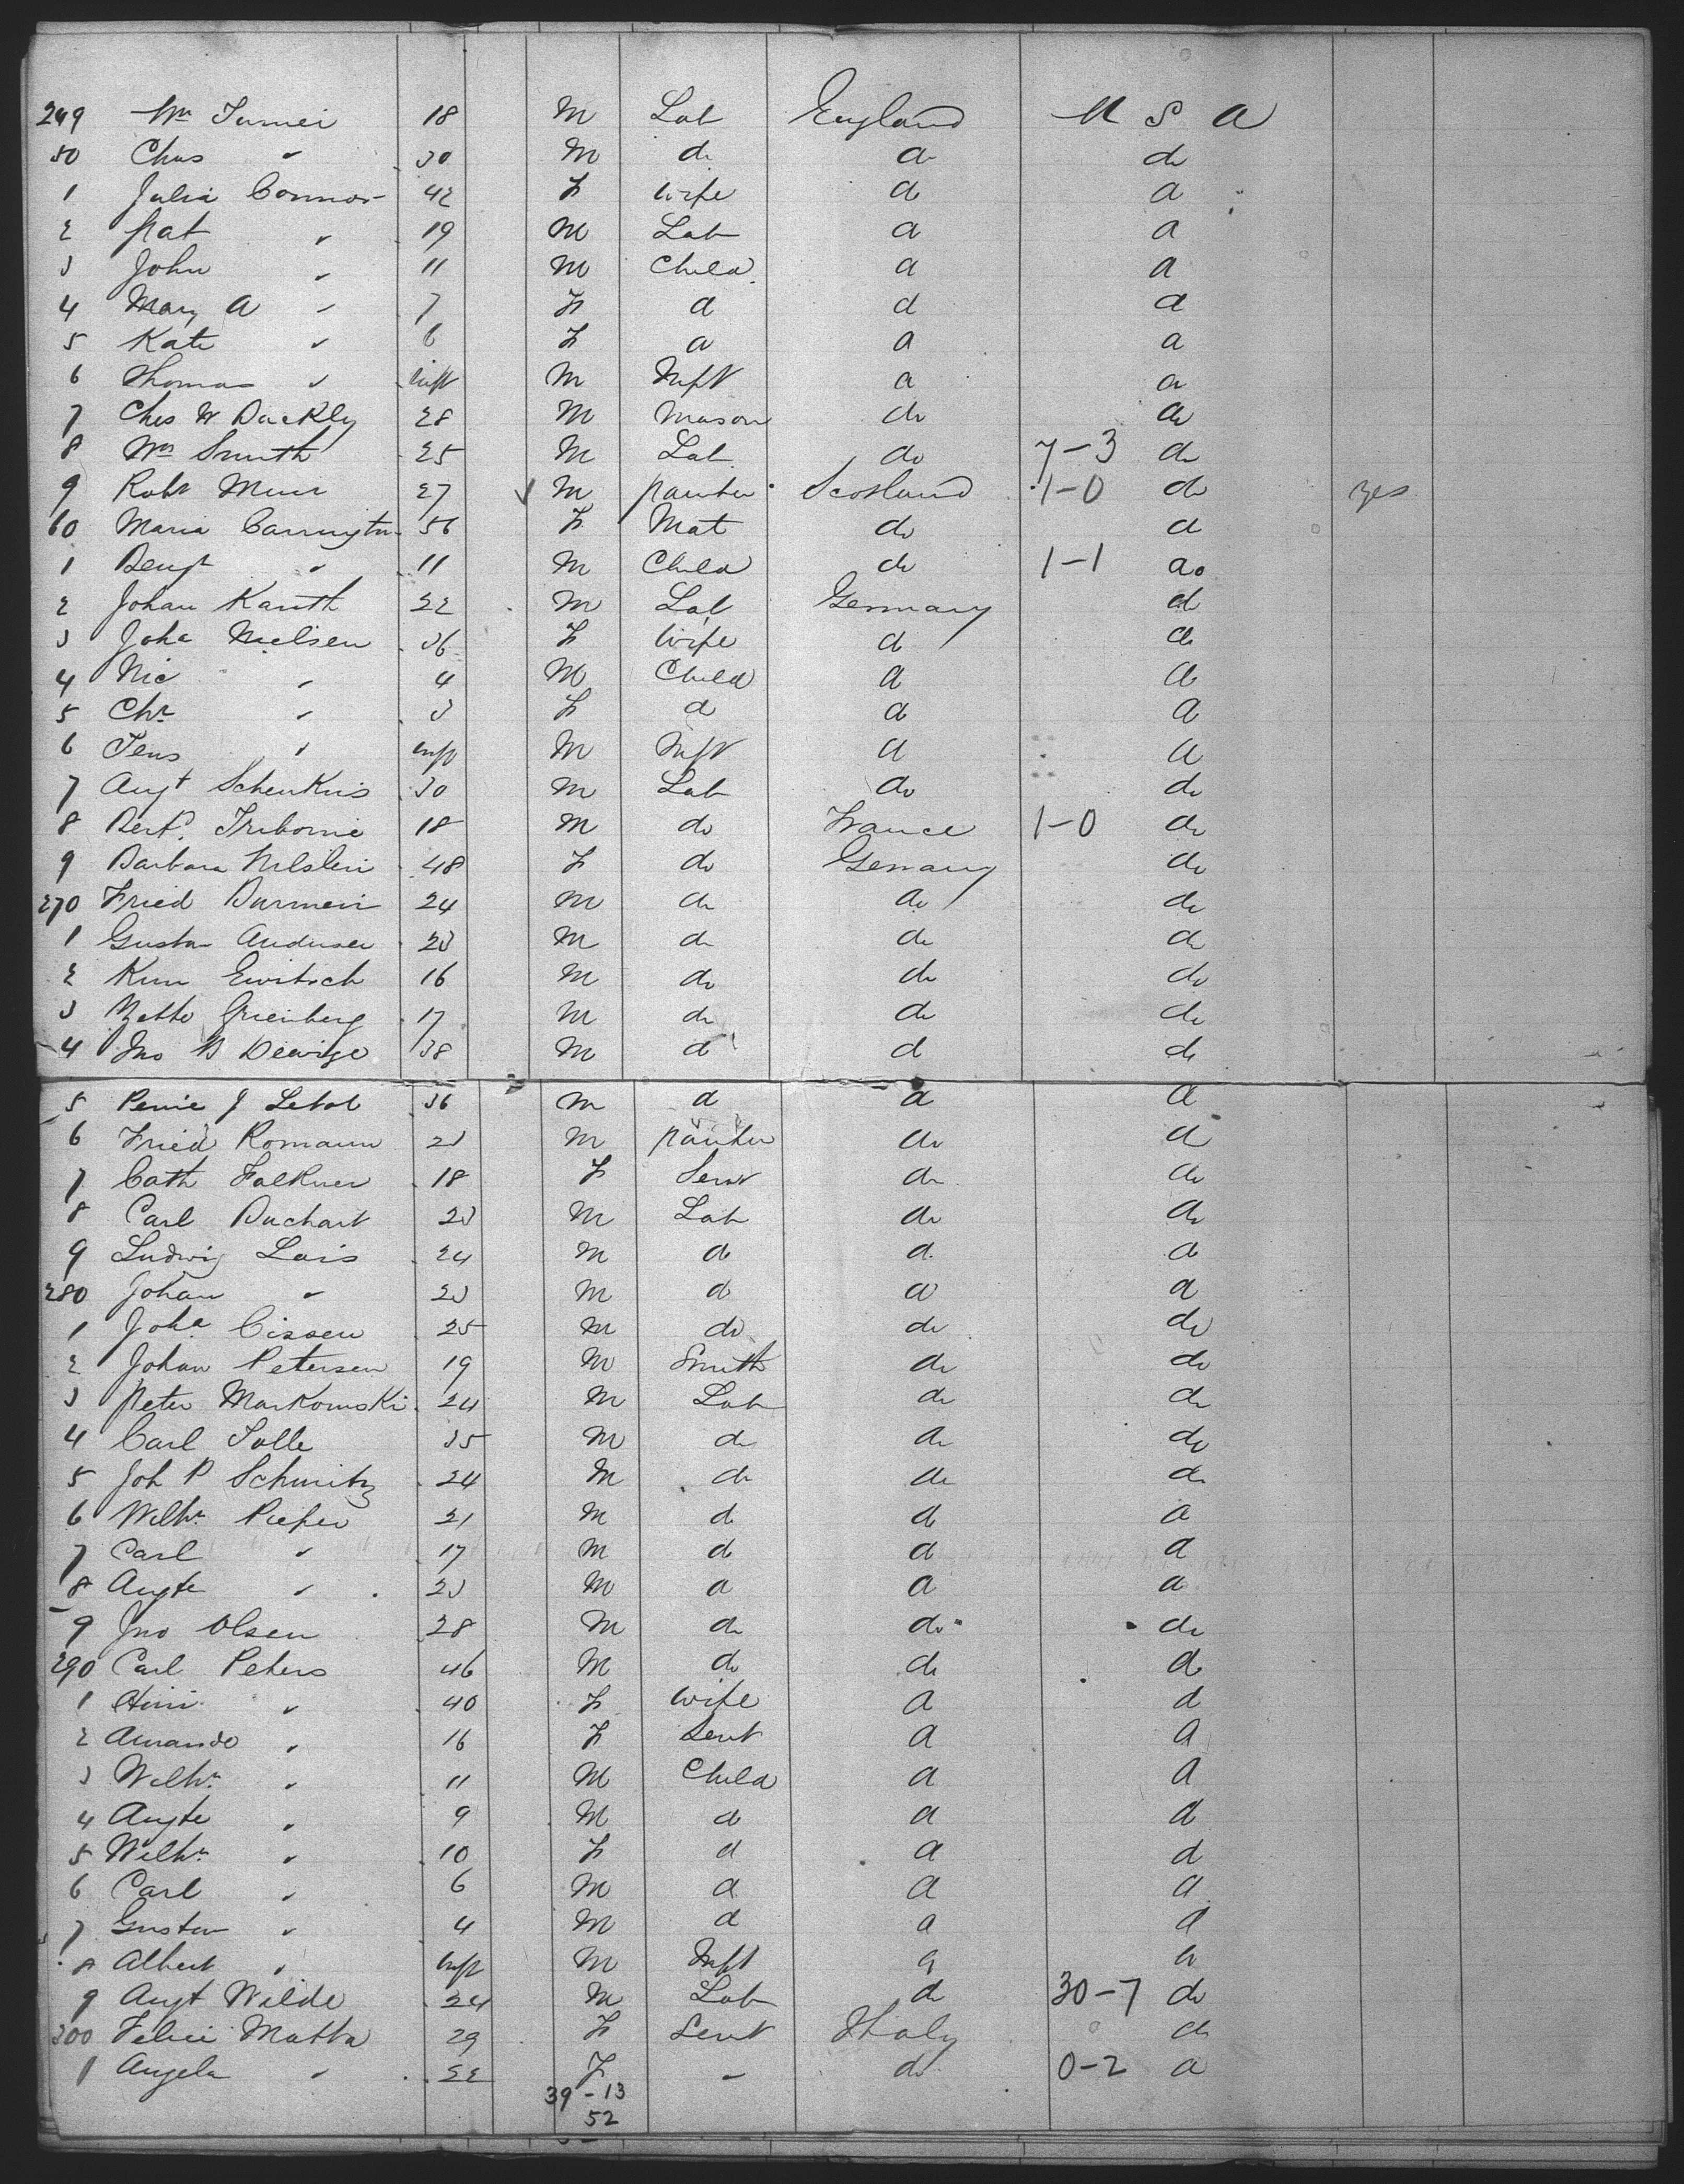 249 Wm Turner 18 M Lab England U S A
50 Chas " 30 M do do do
1 Julia Connor 42 F Wife do do
2 Pat " 19 M Lab do do
3 John " 11 M Child do do
4 Mary A " 7 F do do do
5 Kate " 6 F do do do
6 Thomas " inft M Inft do do
7 Chas W 28 M Mason do do
8 Wm Smith 25 M Lab do 7-3 do
9 Robt Muir 27 M painter Scotland 1-0 do yes
60 Maria Carrington 56 F Mat do do
1 Benj " 11 M Child do 1-1 do
2 Johan Kauth 22 M Lab Germany do
3 Joha Nielsen 36 F Wife do do
4 Nic " 4 M Child do do
5 Chr " 3 F do do do
6 Jens " inft M Inft do do
7 Augt 30 M Lab do do
8 18 M do France 1-0 do
9 Barbara 48 F do Germany do
270 Fried 24 M do do do
1 Gustav Andersen 23 M do do do
2 16 M do do do
3 17 M do do do
4 Jno 38 M do do do
5 J 36 M do do do
6 Fried Romann 23 M painter do do
7 Cath Falkner 18 F Servt do do
8 Carl Buchart 23 M Lab do do
9 Ludwig Lais 24 M do do do
280 Johan " 23 M do do do
1 Joha Cissen 25 M do do do
2 Johan Petersen 19 M Smith do do
3 Peter Markowski 24 M Lab do do
4 Carl 35 M do do do
5 Joh P Schmitz 24 M do do do
6 Wilhr Piefer 21 M do do do
7 Carl " 17 M do do do
8 Augte " 23 M do do do
9 Jno Olsen 28 M do do do
290 Carl Peters 46 M do do do
1 " 40 F Wife do do
2 Amando " 16 F Servt do do
3 Wilhr " 11 M Child do do
4 Augte " 9 M do do do
5 Wilhr " 10 F do do do
6 Carl " 6 M do do do
7 Gustav " 4 M do do do
8 Albert " inft M Inft do do
9 Augt Wilde 24 M Lab do 30-7 do
300 Felici Matta 29 F Servt Italy do
1 Angela " 22 F " do 0-2 do
39-13
52